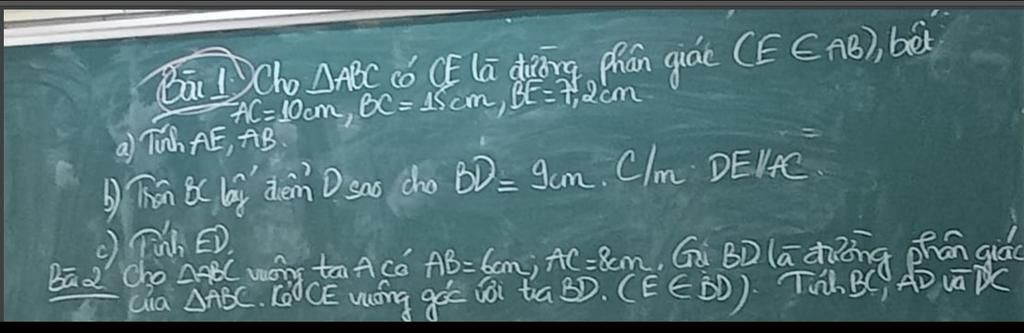 Bài 1: Cho ΔABC có CE là đường phân giác (E ∈ AB), biết
AC=10cm, BC=15cm, BE=7,2cm
a) Tính AE, AB.
b) Trên BC lấy điểm D sao cho BD=9cm. C/m DE//AC.
c) Tính ED.
Bài 2 Cho ΔABC vuông tại A có AB=6cm; AC=8cm. Gọi BD là đường phân giác
của ΔABC. Kẻ CE vuông góc với tia BD. (E ∈ BD). Tính BC, AD và DC